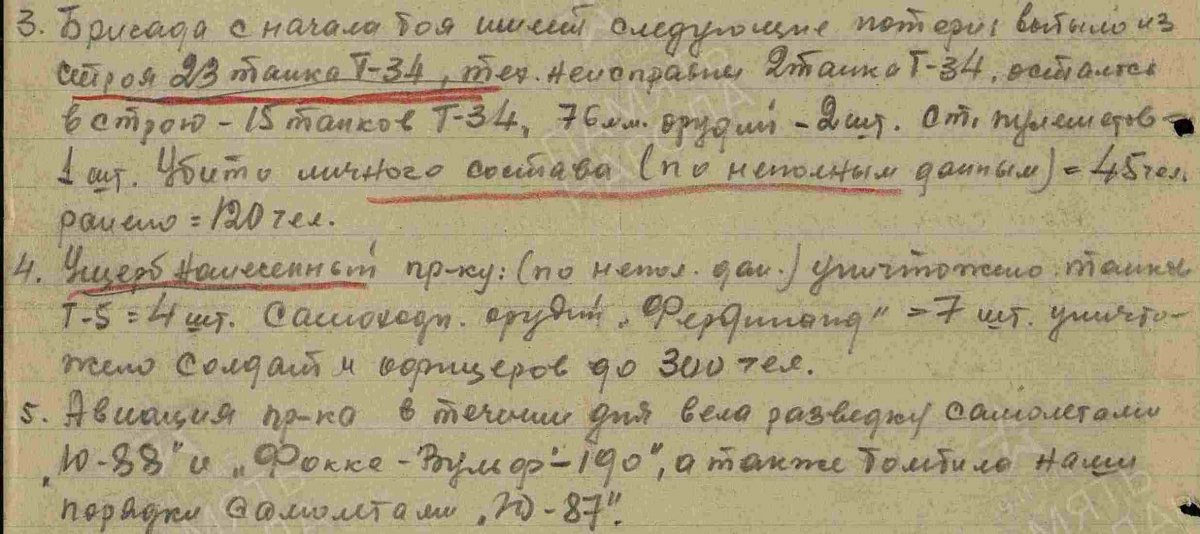 3. Бригада с начала боя имеет следующие потери: выбыло из
строя 23 танка Т-34, тех. неисправны 2 танка Т-34, осталось
в строю - 15 танков Т-34, 76 мм. орудий - 2 шт. ст. пулеметов -
1 шт. Убито личного состава (по неполным данным) = 45 чел.
ранено = 120 чел.
4. Ущерб нанесенный пр-ку: (по непол. дан.) уничтожено танков
Т-5 = 4 шт. Самоходн. орудий „Фердинанд" = 7 шт. уничто-
жено солдат и офицеров до 300 чел.
5. Авиация пр-ка в течении дня вела разведку самолетами
„Ю-88" и „Фокке-Вульф-190", а также бомбила наши
порядки самолетами „Ю-87".